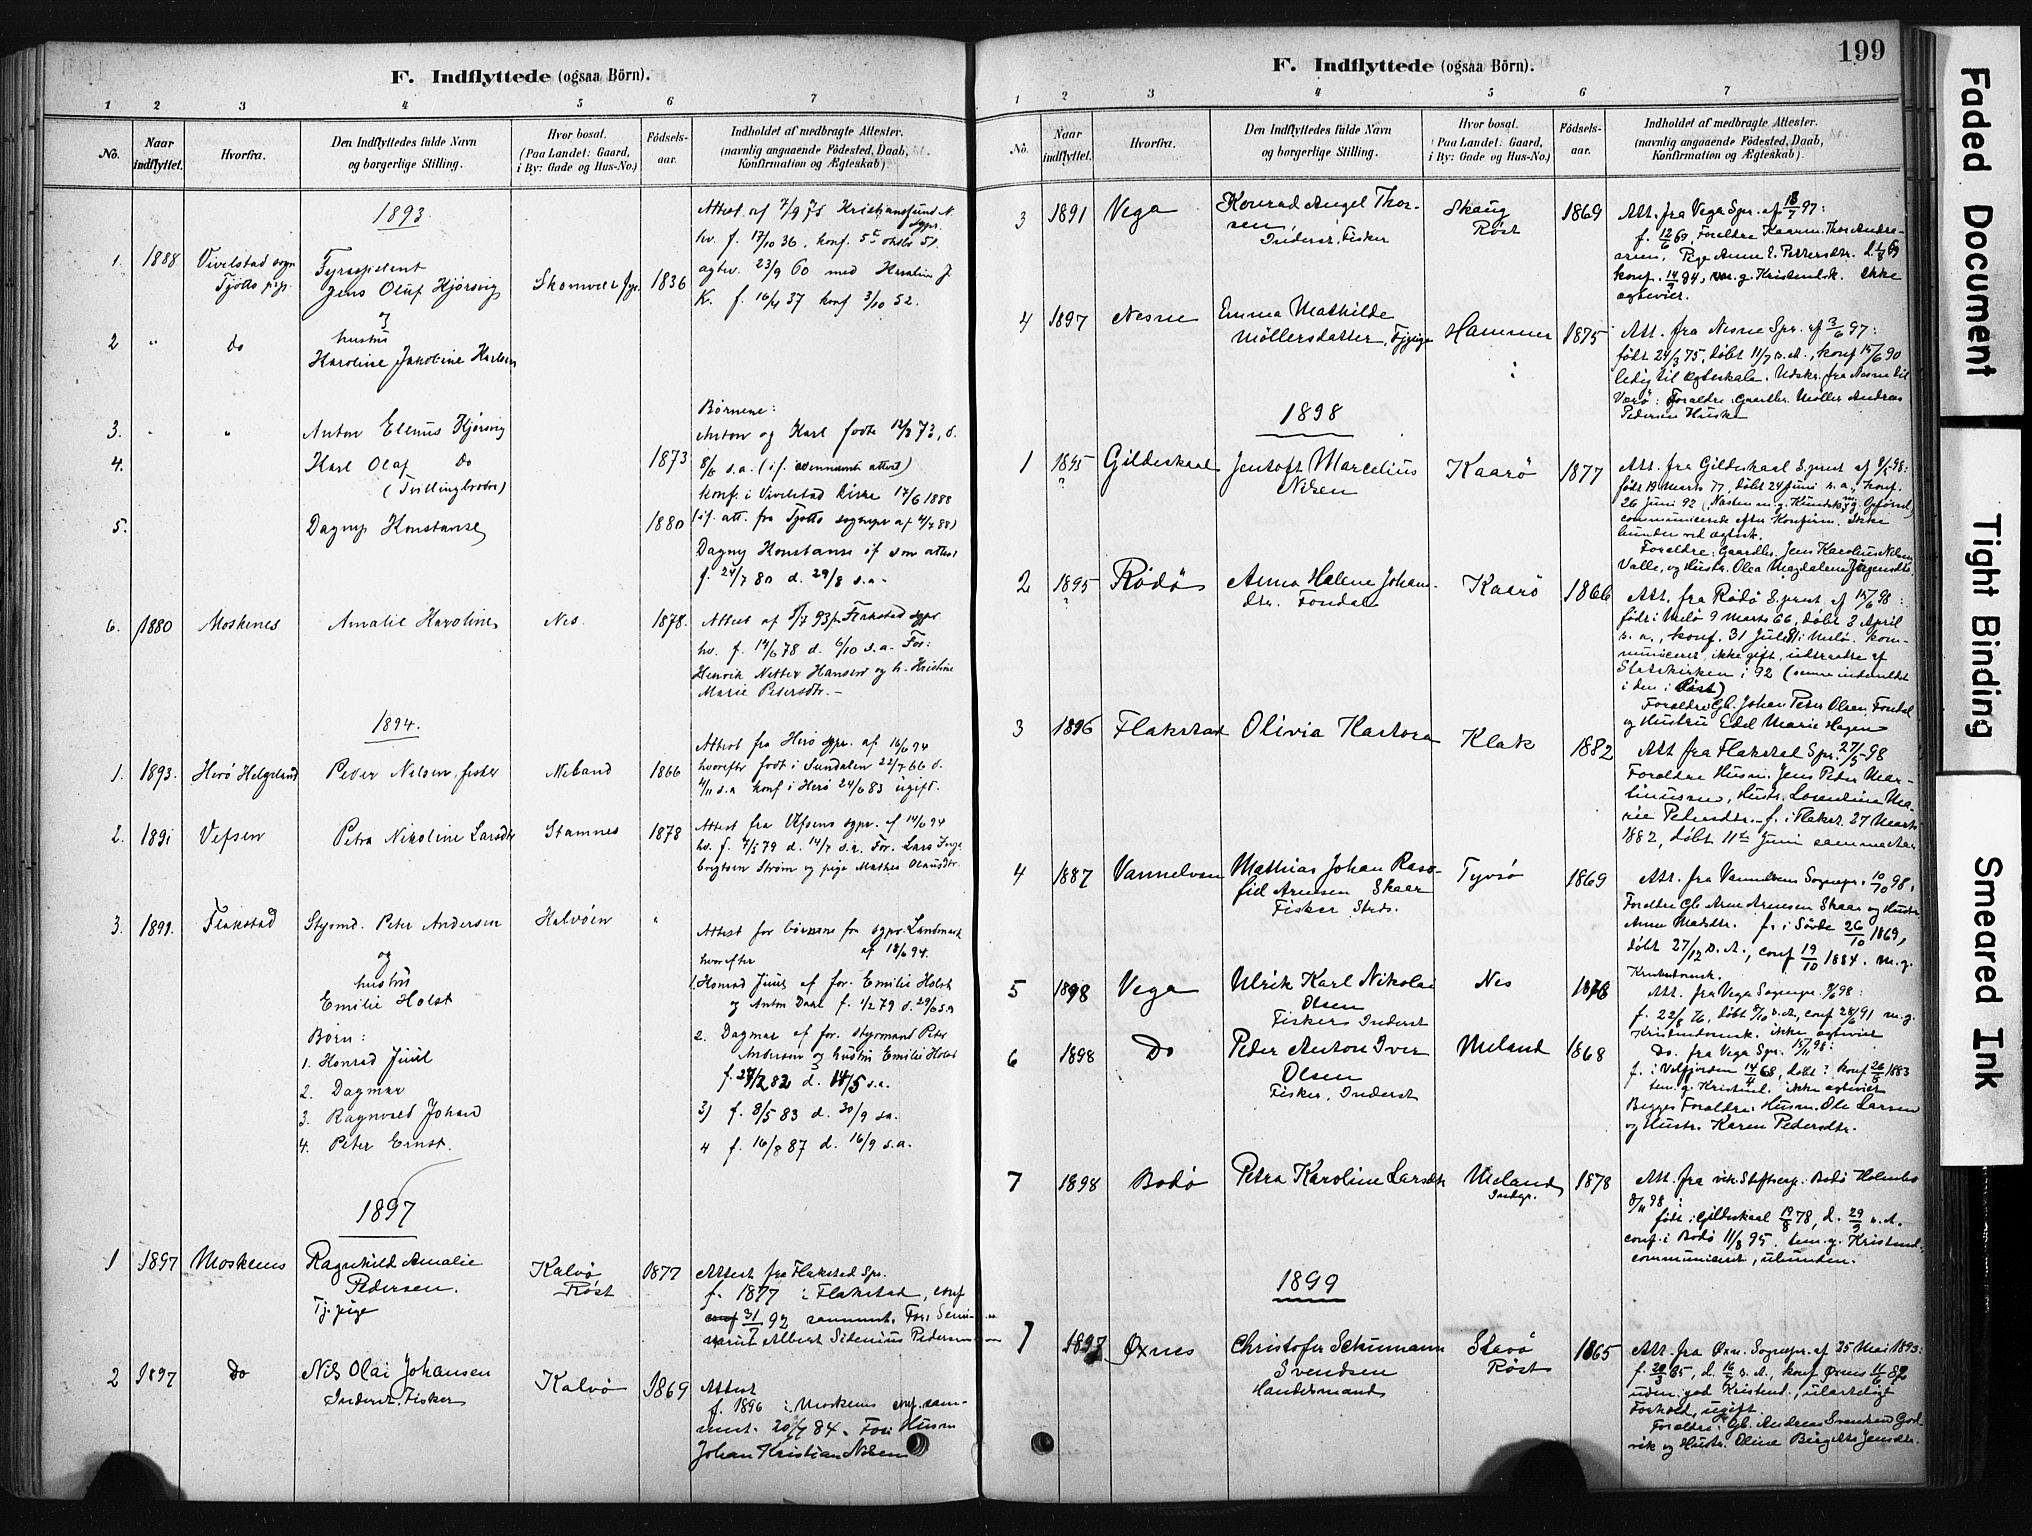 F. Indflyttede (ogsaa Börn).
1 2 3 4 5 6 7
No.
Naar indflyttet.
Hvorfra.
Den Indflyttedes fulde Navn
og borgerlige Stilling.
Hvor bosat.
(Paa Landet: Gaard,
i By: Gade og Hus-No.)
Födsels-
aar.
Indholdet af medbragte Attester.
(navnlig angaaende Födested, Daab,
Konfirmation og Ægteskab)
1893.
1. 1888 Vivelstad sogn
Tjøtto pgj.
Fyrassistent
Jens Oluf Hjørsvig
Skomvær fyr 1836
Attest af 7/9 75 Kristiansund N.
hv. f. 17/10 36, konf. 5te oktbr 51
ægtev. 23/9 60 med Karoline J.
K. f. 16/4 37 konf 3/10 52.
og
2 " do
hustru
Karoline Jakobine Karlsen
3. " "
Anton Elenus Hjørsvig
4.
Karl Olaf Do 1873
(Tvillingbrødre)
Børnene:
Anton og Karl fødte 12/3 73, d.
8/6 s.a. (if. ovennævnte attest)
konf. i Vivelstad kirke 17/6 1888
(if. att. fra Tjøtto sognepr af 4/7 88)
5.
Dagny Konstanse 1880
Dagny Konstanse if samme attest
f. 24/7 80 d. 29/8 s.a.
6. 1880 Moskenes Amalie Karoline Nes 1878.
Attest af 5/7 93 fr. Flakstad sgpr
hv. f. 14/6 78 d. 6/10 s.a. For:
Henrik Nitter Hansen og h. Kristine
Marie Petersdtr. —
1894.
1. 1893. Herö Helgeland Peder Nilsen, fisker Meland 1866
Attest fra Herö sgpr. af 16/6 94
hvorefter født i Sundalen 22/7 66 d.
4/11 s.a konf i Herö 24/6 83 ugift.
2. 1891 Vefsen Petra Nikoline Larsdtr Stamnes 1878
Attest fra Vefsens sgpr. af 14/6 94
hv. f. 7/5 79 d. 14/7 s.a. For. Lars Inge
brigtsen Strøm og pige Mathea Olausdtr.
3. 1891. Flakstad Styrmd. Peter Andersen Kalvöen "
og
hustru
Emilie Holst
Attest for börnene fra sgpr Landmark
hvorefter af 18/6 94.
Börn:
1. Konrad Juul
2. Dagmar
3. Ragnvald Johan
4. Peter Ernst.
1. Konrad Juul af for. Emilie Holst
og Anton Daae f. 1/2 79 d. 29/6 s.a
2. Dagmar af for. styrmand Peter
Andersen og hustru Emilie Holst
f. 27/2 82 d. 14/5 s.a.
3) f. 8/5 83 d. 30/9 s.a.
4 f. 16/8 87 d. 16/9 s.a.
1897
1 1897 Moskenes Ragnhild Amalie
Pedersen.
Tj. pige
Kalvø
Røst
1877
Attest fra Flakstad Spr.
f. 1877 i Flakstad, conf
conf 31/7 92 sammest. For:
Albert Sidenius Pedersen
2 1897 Do Nils Olai Johansen
Inderst. Fisker
Kalvø 1869
Attest
f. 1896 i Moskenes conf. sam-
mest. 20/7 84. For: Husm
Johan Kristian Nilsen
F. Indflyttede (ogsaa Börn).
199
1 2 3 4 5 6 7
No.
Naar indflyttet.
Hvorfra.
Den Indflyttedes fulde Navn
og borgerlige Stilling.
Hvor bosat.
(Paa Landet: Gaard,
i By: Gade og Hus-No.)
Födsels-
aar.
Indholdet af medbragte Attester.
(navnlig angaaende Födested, Daab,
Konfirmation og Ægteskab)
3 1891 Vega Konrad Angel Thor-
sen,
Inderst, Fisker
Skaug
Röst
1869
Att. fra Vega Spr. af 18/7 97:
f. 12/6 69, Foreldre Kaarm. Thor Andre-
asen, Pige Anne E. Pettersdtr. d. 1/8 69
konf. 14/9 84, m. g. Kristendsk. ikke
ægteviet.
4 1897 Nesne Emma Mathilde
Møllersdatter, Tjpige
Hammer 1875
Att. fra Nesne Spr. af 3/6 97:
født 24/3 75, døbt 11/7 s.A., konf 15/6 90
ledig til Ægteskab. Udskr. fra Nesne til
Værö: Foraldre: Gaardbr. Möller Andreas
Pedersen Husby
1898
1 1895
?
Gildeskaal Jentoft Marcelius
Nilsen
Kaarö 1877
Att. fra Gildeskaal Sprest af 9/5 98:
født 19 Marts 77, døbt 24 Juni s.a., konf.
26 Juni 92 (Næsten m. g. Kundsk. g. Opførsel)
communicerede efter Konfirm. Ikke
bunden ved ægtesk.
Foraldre: Gaardbr. Jens Karolius Nilsen
Valle, og Hustr. Olea Magdalena Jørgensdtr.
2 1895
?
Rödö Anna Heline Johan-
dtr. Fondal
Kaarö 1866
Att. fra Rödö Sprest af 15/6 98:
født i Melö 9 Marts 66, døbt 2 April
s. a., konf. 31 Juli 81 i Melö. kom-
municeret, ikke gift, udtraadte af
Statskirken i 92 (senere indmeldt
i den i Röst)
Foraldre Gb. Johan Peter Olsen Fondal
og Hustru Edel Marie Hagen
3 1896 Flakstad Olivia Kastora Klak 1882
Att fra Flakstad Spr. 27/5 98
Foraldre Husm. Jens Peter Mar-
tinussen, Hustr. Lorentine Ma-
rie Petersdtr.— f. i Flakst. 27 Marts
1882, døbt 11te Juni samme Aar
4 1887 Vannelven Mathias Johan Ras-
fid Arnesen Skaar
Fisker Strds.
Tyvsö 1869
Att. fra Vannelvens Sognepr. 10/10 98.
Foreldre Gb. Arne Arnesen Skaar og Hustr.
Anne Madsdtr. f. i Søvde 26/10 1869,
døbt 27/12 s. A., conf 19/10 1884. m. g.
Kristendomsk.
5 1898 Vega Ulrik Karl Nikolai
Olsen
Fisker, Inderst
Nes 1876
Att. fra Vega Sognepr. 9/6 98:
f. 22/8 76, døbt 8/10 s.A., conf 28/6 91 m. g.
Kristendomsk. ikke ægteviet
6 1898 Do Peder Anton Iver
Olsen
Fisker, Inderst
Meland 1868
Do. fra Vega Spr. 15/11 98:
f. i Velfjorden 14/4 68, døbt? konf 26/8 1883
tem. g. Kristend. ikke ægteviet
Begges Foraldre: Husm. Ole Larsen
og Hustr. Karen Pedersdtr.
7 1898 Bodö Petra Karoline Larsdtr Meland
Indgr.
1878
Att. fra vik. Stiftscap. Bodö Holmbo
8/11 98:
født i Gildeskaal 19/8 78, d. 29/9 s. A.
conf. i Bodö 11/8 95. tem. g. Kristend.
communiceret, ubunden.
1899
1 1897 Öxnes Christofer Schumann
Svendsen
Handelsmand
Stavö
Röst
1865
Att. fra Öxn. Sognepr. af 25 Mai 1893:
f. 20/3 65, d. 16/7 s. A., konf. Öxnes 16/6 82
uden god Kristend., ulasteligt
Forhold, ugift.
Foraldre: Gb. Andreas Svendsen God-
vik og Hustr. Oline Birgitte Jensdtr.
Faded Document
Tight Binding
Smeared Ink